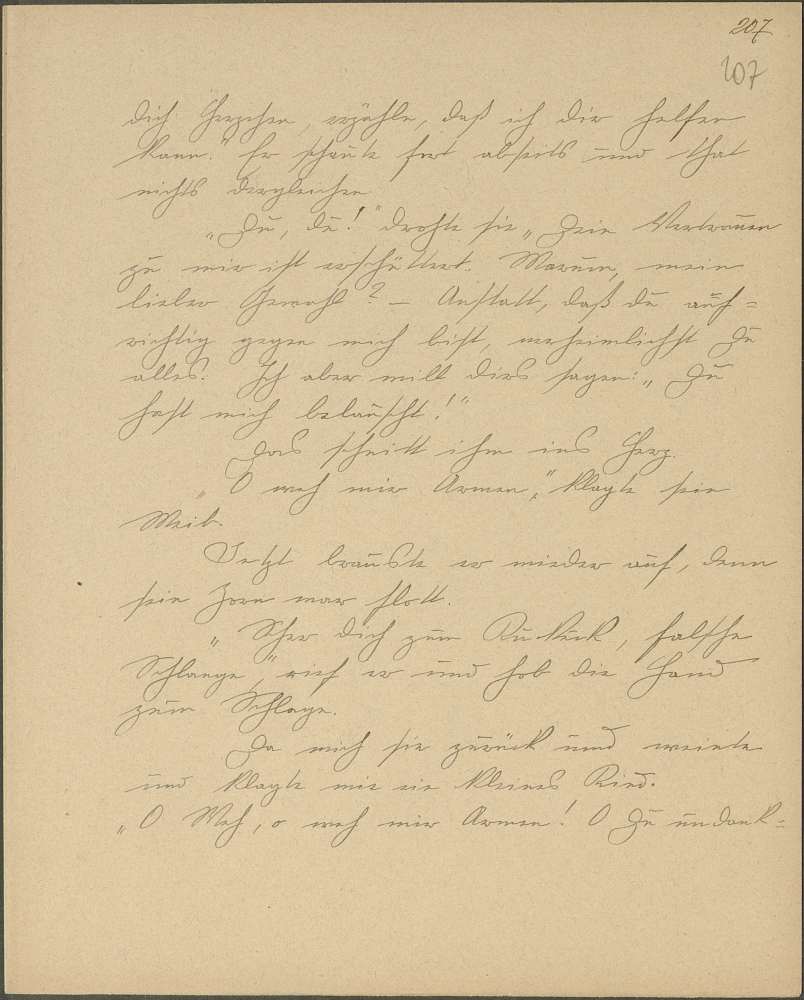 207
107
dich Herzchen, erzähle, daß ich dir helfen
kann." Er schaute fort abseits und that
nichts dergleichen
"Du, du!" drohte sie „Dein Vertrauen
zu mir ist erschüttert. Warum, mein
lieber Gemahl? – Anstatt, daß du auf=
richtig gegen mich bist, verheimlichst Du
alles. Ich aber will dirs sagen: „Du
hast mich belauscht!"
Das schnitt ihm ins Herz.
„O weh mir Armen," klagte sein
Weib.
Jetzt brauste er wieder auf, denn
sein Zorn war flott.
„Scher dich zum Kukuk, falsche
Schlange," rief er und hob die Hand
zum Schlage.
Da wich sie zurück und weinte
und klagte wie ein kleines Kind.
„O Weh, o weh mir Armen! O Du undank=